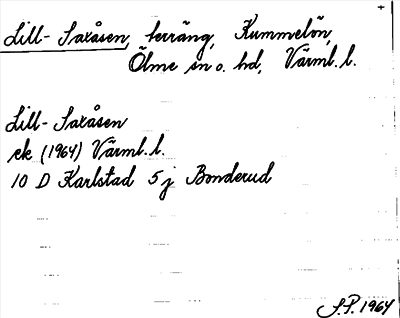 Lill-Saxåsen, terräng, Kummelön,
Ölme sn o. hd, Värml. l.
Lill-Saxåsen
ek (1964) Värml. l.
10 D Karlstad 5 j Bonderud
S.P. 1964